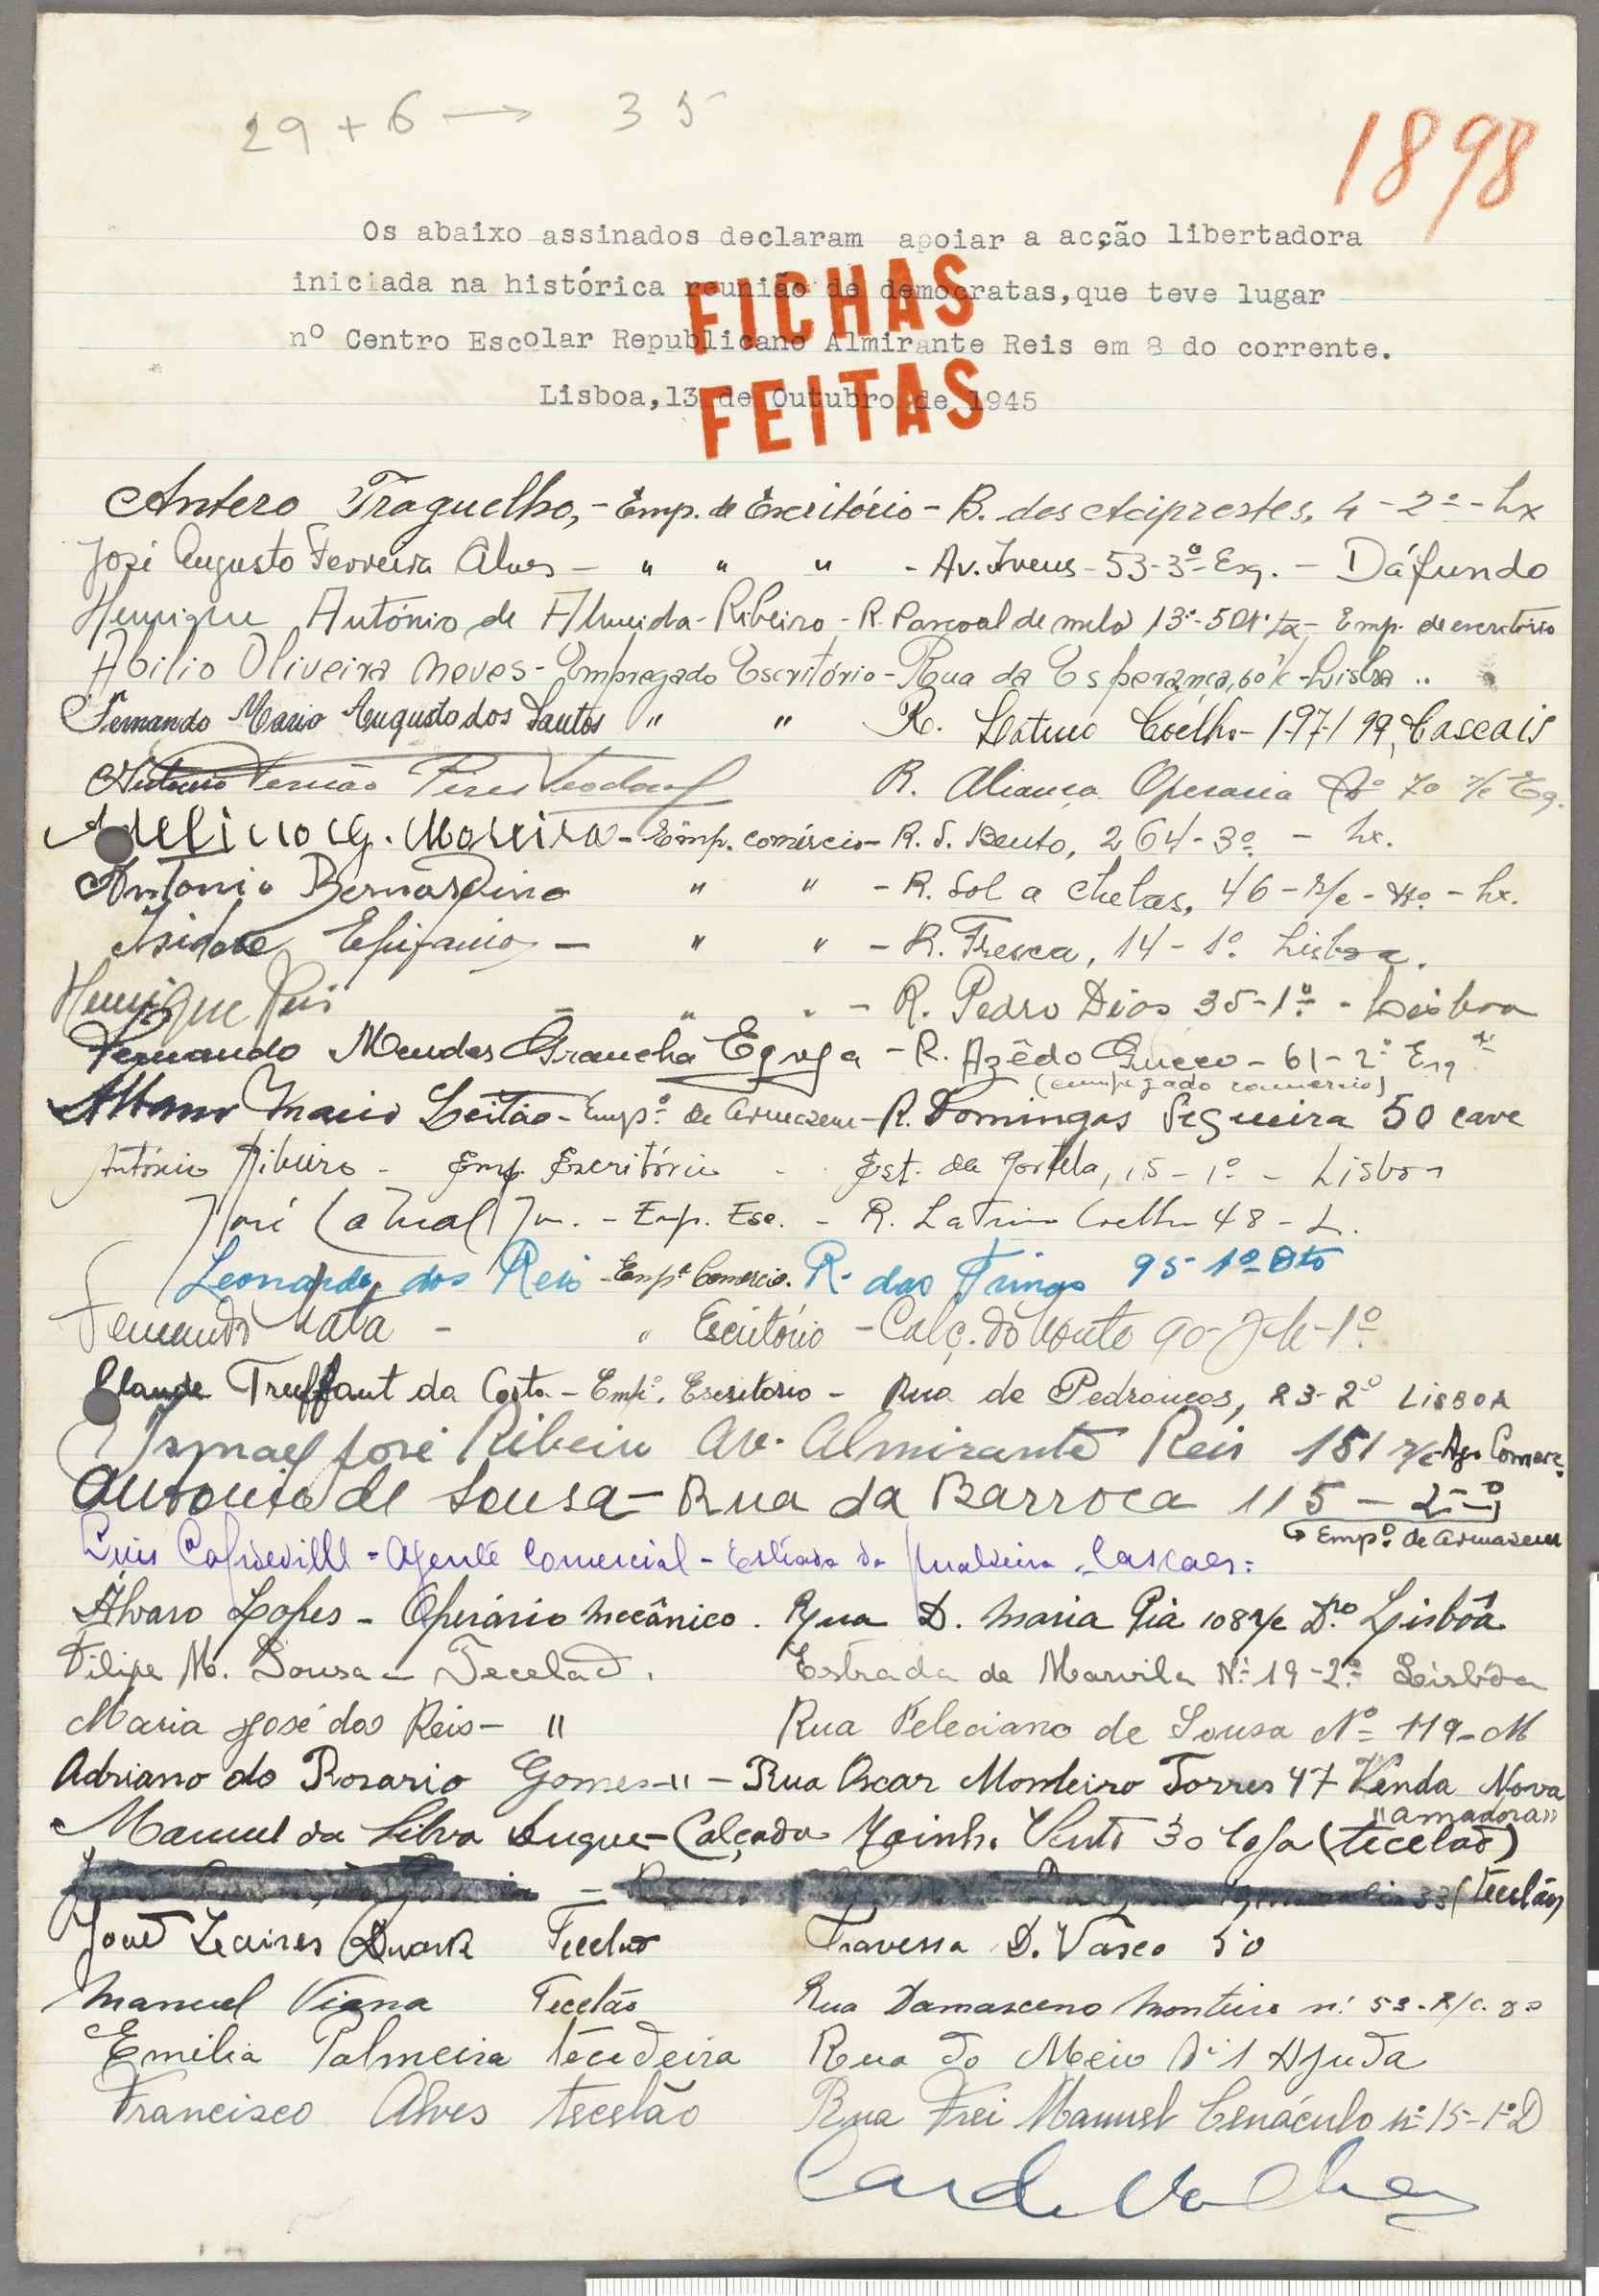 29 + 6 → 35
1898
Os abaixo assinados declaram apoiar a acção libertadora
iniciada na histórica reunião de democratas, que teve lugar
nº Centro Escolar Republicano Almirante Reis em 8 do corrente.
Lisboa, 13 de Outubro de 1945
FICHAS
FEITAS
Antero Traguelho, - Emp. de Escritório - B. des Aciprestes, 4 - 2º - Lx
José Augusto Ferreira Alves - " " " - Av. Ivens - 53-3º Esq. - Dáfundo
Henrique António de Almeida Ribeiro - R. Pascoal de melo 13 - Emp. de escritório
Abilio Oliveira Neves - Empregado Escritório - Rua da Esperança, 60 - Lisboa
Fernando Mario Augusto dos Santos " " R. Latino Coêlho - 197/199, Cascais
António Pires R. Aliança Operaria 70 r/c Esq.
Adelino G. Moreira - Emp. comércio - R. S. Bento, 264 - 3º - Lx.
António Bernardino " " - R. Sol a Chelas, 46 - r/c - Lx.
Isidoro Epifanio - " " - R. Fresca, 14 - 1º Lisboa.
Henrique Reis - " " - R. Pedro Dias 35 - 1º - Lisboa
Fernando Mendes - R. Azêdo Gneco - 61 - 2º Esq
(empregado comércio)
Mario Leitão - Empº de armazem - R. Domingos Sequeira 50 cave
António Ribeiro - Emp. Escritório - Est. da Portela, 15 - 1º - Lisboa
José Jor. - Emp. Esc. - R. Latino Coelho 48 - L.
Leonardo dos Reis - Empº Comercio. R. das Trinas 95 - 1º Dto
Fernando Mata - " Escritório - Calç. do Monte 90 - 1º
Claude Truffaut da Costa - Empº. Escritorio - Rua de Pedrouços, 23 - 2º LISBOA
Ismael José Ribeiro Av. Almirante Reis 151 r/c Ag. Comerc.
Antonio de Sousa - Rua da Barroca 115 - 2º
→ Empº. de armazem
Luis - Agente Comercial - Estrada da - Cascaes =
Álvaro Lopes - Operário mecânico. Rua D. Maria Pia 108 r/c Dto Lisbôa
Filipe M. Sousa - Tecelão. Estrada de Marvila Nº 19 - 2º Lisbôa
Maria José dos Reis - " Rua Feleciano de Sousa Nº 119 - M
Adriano do Rosario Gomes - " - Rua Oscar Monteiro Torres 47 Venda Nova
"amadora"
Manuel da Silva Duque - Calçada Moinho Vento 30 loja (tecelão)
33 (Tecelão)
José Duarte Tecelão Travessa D. Vasco 50
Manuel Viana Tecelão Rua Damasceno Monteiro nº 53 - R/c.
Emilia Palmeira tecedeira Rua do Meio Nº 1 Ajuda
Francisco Alves tecelão Rua Frei Manuel Cenáculo nº 15 - 1º D